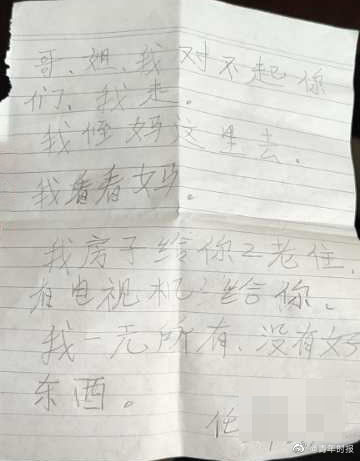 哥、姐、我对不起你
们、我走。
我妈这里去。
我看看妈。
我房子给你2老住、
电视机、给你、
我一无所有、没有好
东西。
任
@青年时报